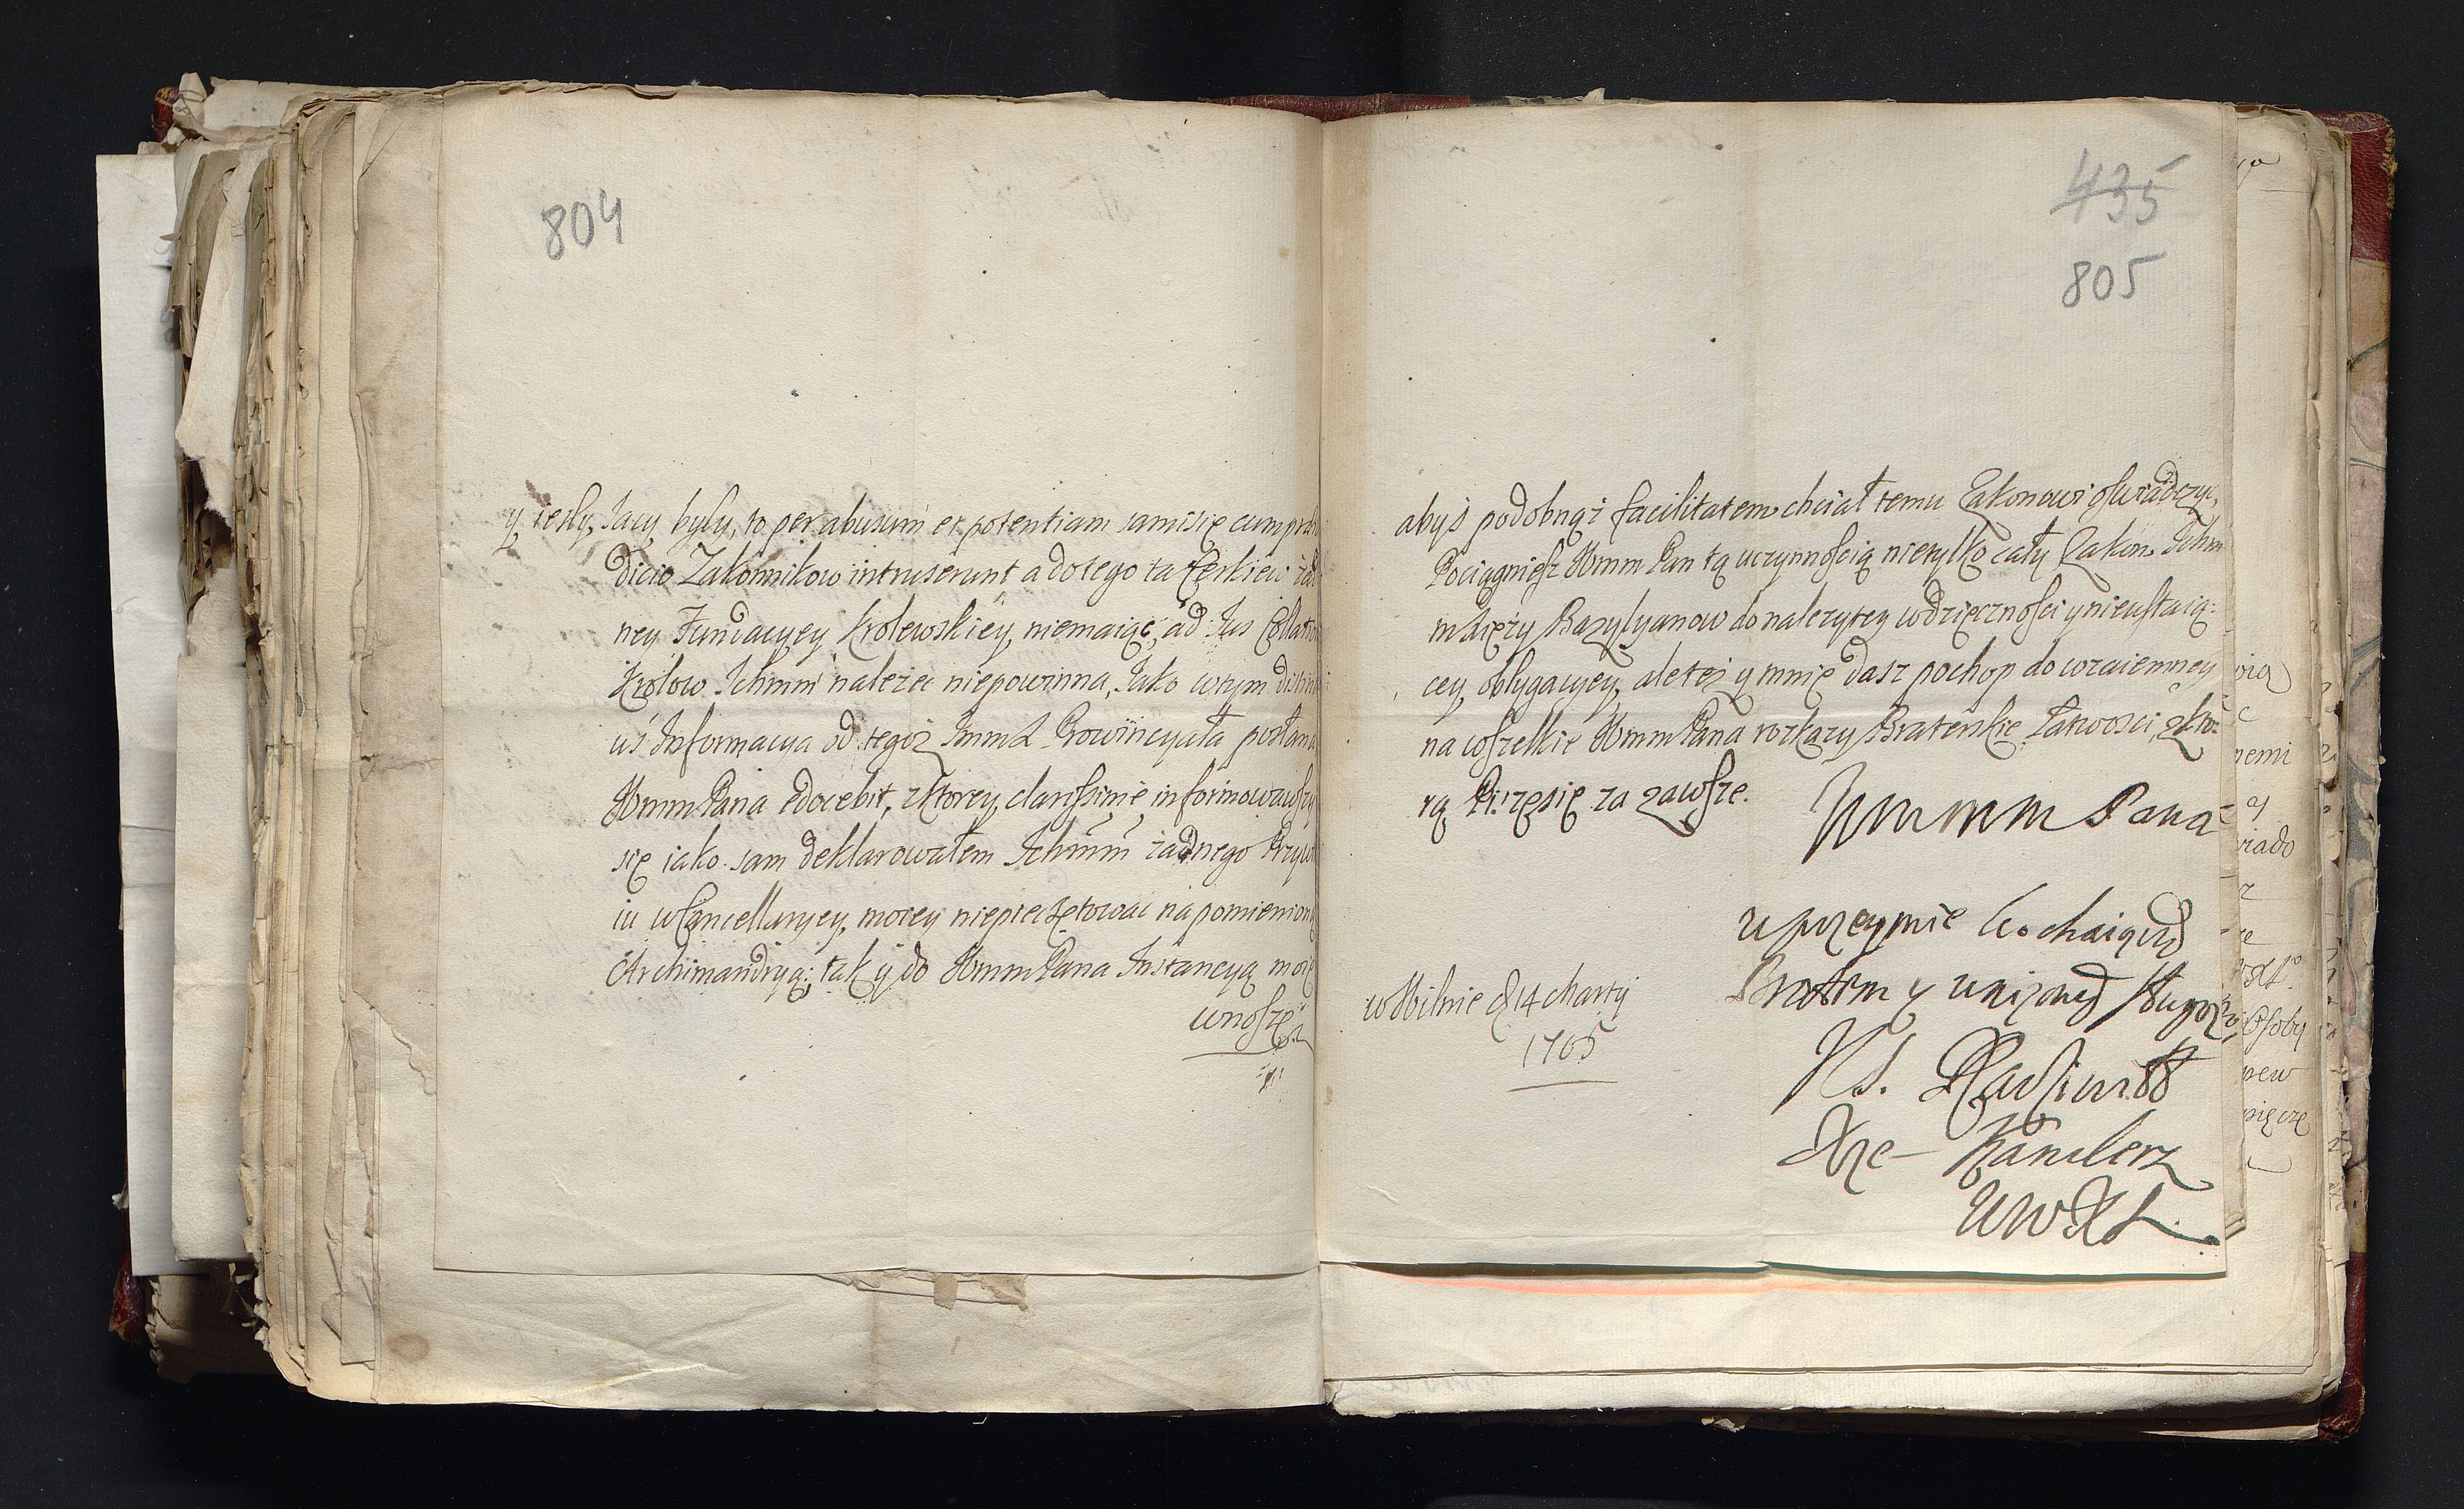 804
y iesly, Jacy byly, to per abusum et potentiam samisię cum præiu
dicio Zakonnikow intruserunt a dotego ta Cerkiew żad
ney Fundacyey Krolewskiey, niemaiąc, ad Jus Collation
Krolow Ichmm należec niepowinna, Jako wtym distincti
us Informacya od tegoż Jmm X Prowincyała posłana
Wmm Pana edocebit, zktorey, clarissime informowawszy
się iako sam deklarowałem Ichmm żadnego Przywi
iu w Cancellaryey, moiey niepieczętowac na pomieniony
Archimandryą; tak y do Wmm Pana Instancyą moię
wnoszę
435
805
abyś podobnąż facilitatem chciał temu Zakonowi oswiadczyc,
Pociągniesz Wmm Pan tą uczynnoscią nietylko cały Zakon Ichm
m Xięży Bazylyanow do nalezytey wdzięcznosci y nieustaią:
cey, oblygacyey, ale też y mnie dasz pochop do wzaiemney
na wszelkie Wmm Pana rozkazy Braterskie łatwosci, zkto:
rą Piszęsię za zawsze.
Wmmm Pana
uprzeymie kochaiącym
Bratem y unizonym sługą
w Wilnie d 14 Marty
1705
K S. Radziwiłł
Xże Kanclerz
W W X L